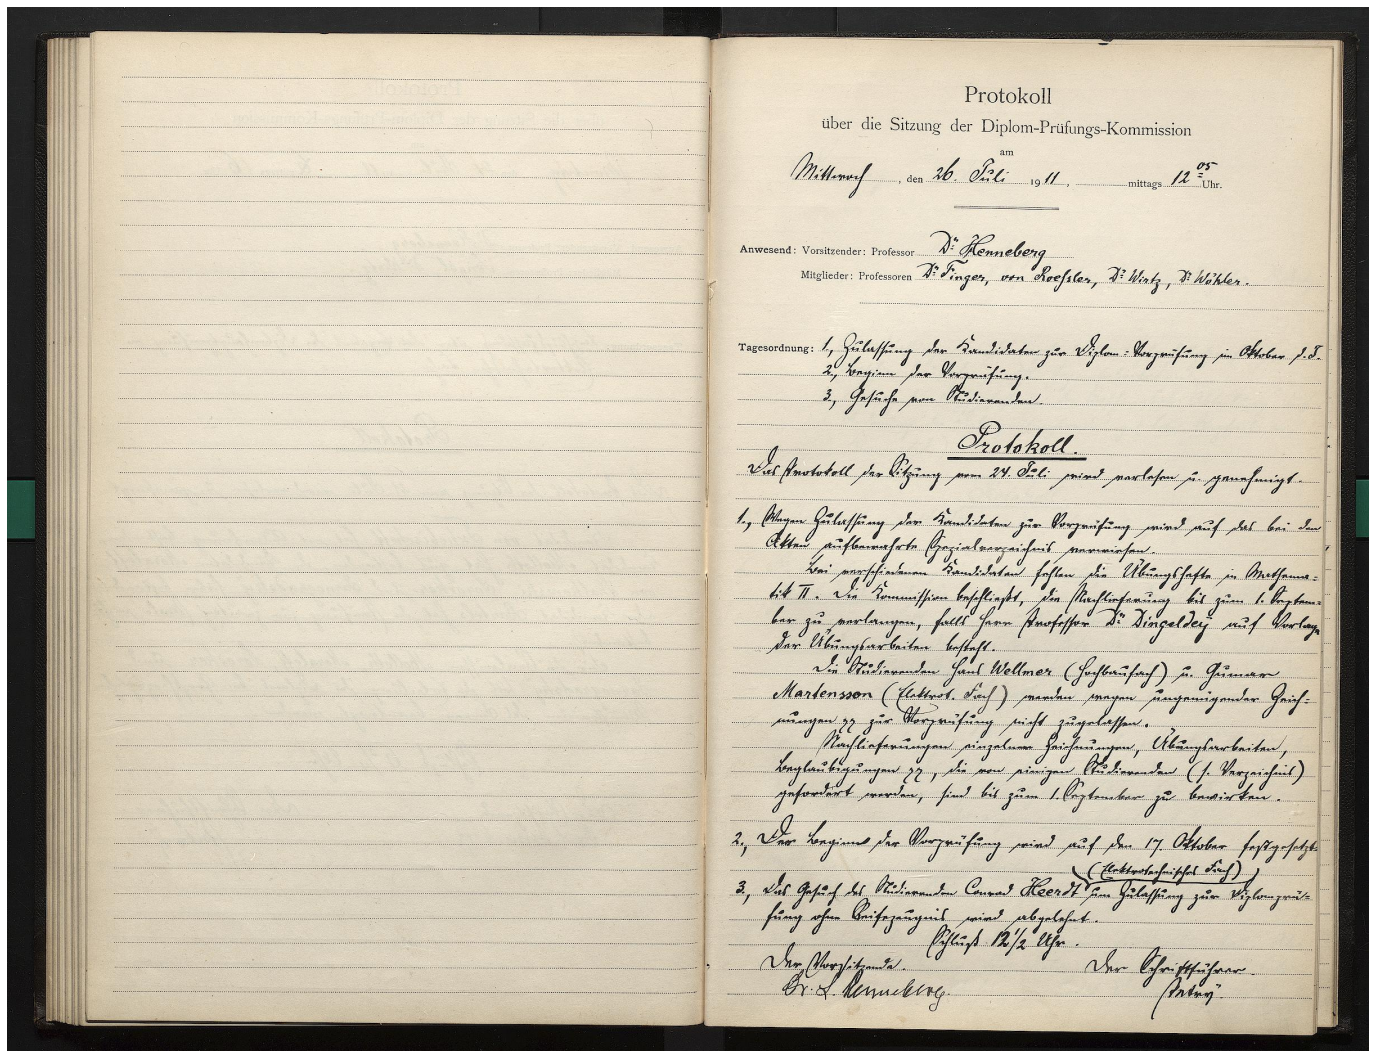 Protokoll
über die Sitzung der Diplom-Prüfungs-Kommission
am
Mittwoch, den 26. Juli 1911, mittags 12 05 Uhr.
Anwesend: Vorsitzender: Professor Dr. Henneberg
Mitglieder: Professoren Dr. Finger, von Roeßler, Dr. Wirtz, Dr. Wöhler.
Tagesordnung: 1., Zulassung der Kandidaten zur Diplom-Vorprüfung im Oktober d. J.
2., Beginn der Vorprüfung.
3., Gesuche von Studierenden.
Protokoll.
Das Protokoll der Sitzung vom 24. Juli wird verlesen u. genehmigt.
1., Wegen Zulassung der Kandidaten zur Vorprüfung wird auf das bei den
Akten aufbewahrte Spezialverzeichnis verwiesen.
Bei verschiedenen Kandidaten fehlen die Übungshefte in Mathema-
tik II. Die Kommission beschließt, die Nachlieferung bis zum 1. Septem-
ber zu verlangen, falls Herr Professor Dr. Dingeldey auf Vorlage
der Übungsarbeiten besteht.
Die Studierenden Hans Wellmer (Hochbaufach) u. Gunnar
Martensson (Elektrot. Fach) werden wegen ungenügender Zeich-
nungen pp zur Vorprüfung nicht zugelassen.
Nachlieferungen einzelner Zeichnungen, Übungsarbeiten,
Beglaubigungen pp, die von einigen Studierenden (s. Verzeichnis)
gefordert werden, sind bis zum 1. September zu bewirken.
2., Der Beginn der Vorprüfung wird auf den 17. Oktober festgesetzt.
(Elektrotechnisches Fach)
3., Das Gesuch des Studierenden Conrad Heerdt um Zulassung zur Diplomprü-
fung ohne Reifezeugnis wird abgelehnt.
Schluß 12 1/2 Uhr.
Der Vorsitzende. Der Schriftführer.
Dr. L. Henneberg. Petry.